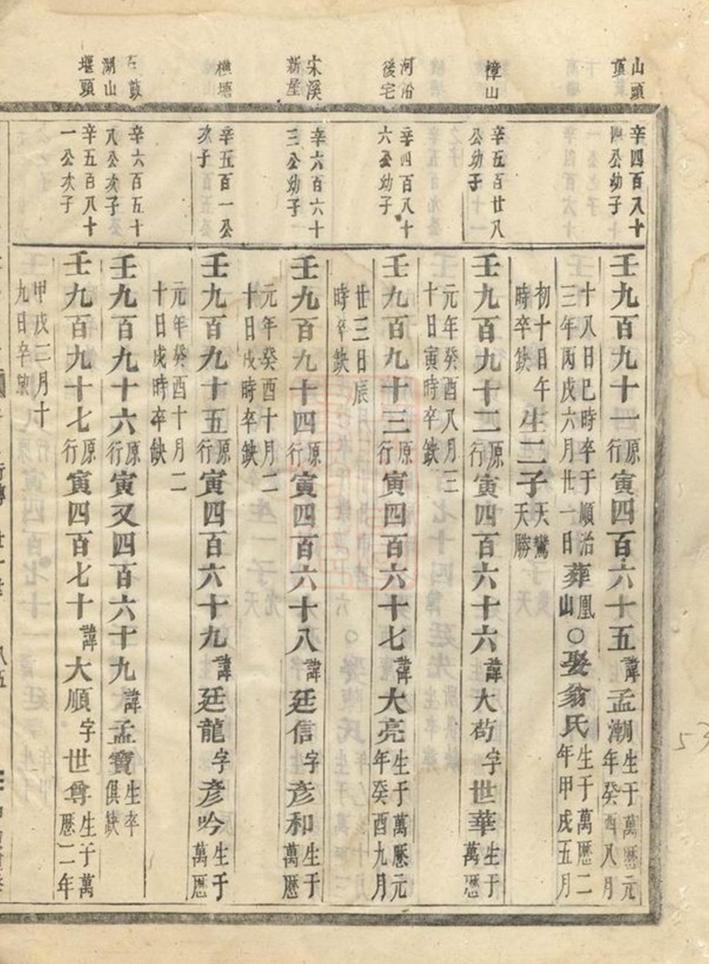 山頭
頂
辛四百八十
四公幼子
壬九百九十一原行寅四百六十五諱孟潮生于萬曆元年癸酉八月
十八日巳時卒于順治三年丙戌六月廿一日葬鳳山○娶翁氏生于萬曆二年甲戌五月
初十日午時卒缺生二子天鸞天勝
樟山
辛五百廿八
公幼子
壬九百九十二原行寅四百六十六諱大苟字世華生于萬曆
元年癸酉八月三十日寅時卒缺
河沿
後宅
辛四百八十
六公幼子
壬九百九十三原行寅四百六十七諱大亮生于萬歷元年癸酉九月
廿三日辰時卒缺
宋溪
新屋
辛六百六十
三公幼子
壬九百九十四原行寅四百六十八諱廷信字彥和生于萬曆
元年癸酉十月二十日戌時卒缺
樵塘
辛五百一公
次子
壬九百九十五原行寅四百六十九諱廷龍字彥吟生于萬曆
元年癸酉十月二十日戌時卒缺
石鼓
湖山
辛六百五十
八公次子
壬九百九十六原行寅又四百六十九諱孟寶生卒俱缺
堰頭
辛五百八十
一公次子
壬九百九十七原行寅四百七十諱大順字世尊生于萬歷二年
甲戌二月十九日辛
行傳
廿
八五
53